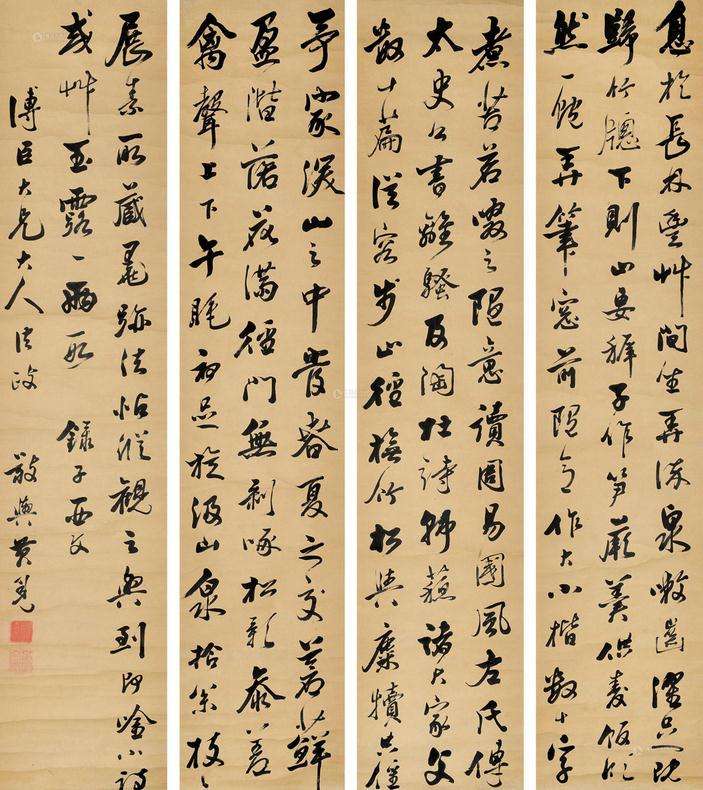 予家深山之中每春夏之交蒼蘚
盈階落花滿徑門無剝啄松影參差
禽聲上下午睡初足旋汲山泉拾松枝
煮苦茗啜之隨意讀周易國風左氏傳
太史公書離騷及陶杜詩韓蘇諸大家文
數十篇從容步山徑撫竹松與麋犢共偃
息於長林豐艸間坐弄流泉漱齒濯足既
歸竹牕下則山妻稚子作筍蕨羹供麥飯欣
然一飽弄筆窓前隨意作大小楷數十字
展素所藏墨跡法帖縱觀之興到即吟小詩
或艸玉露一兩段 錄子西文
傅臣大兄大人法政
敬輿黃